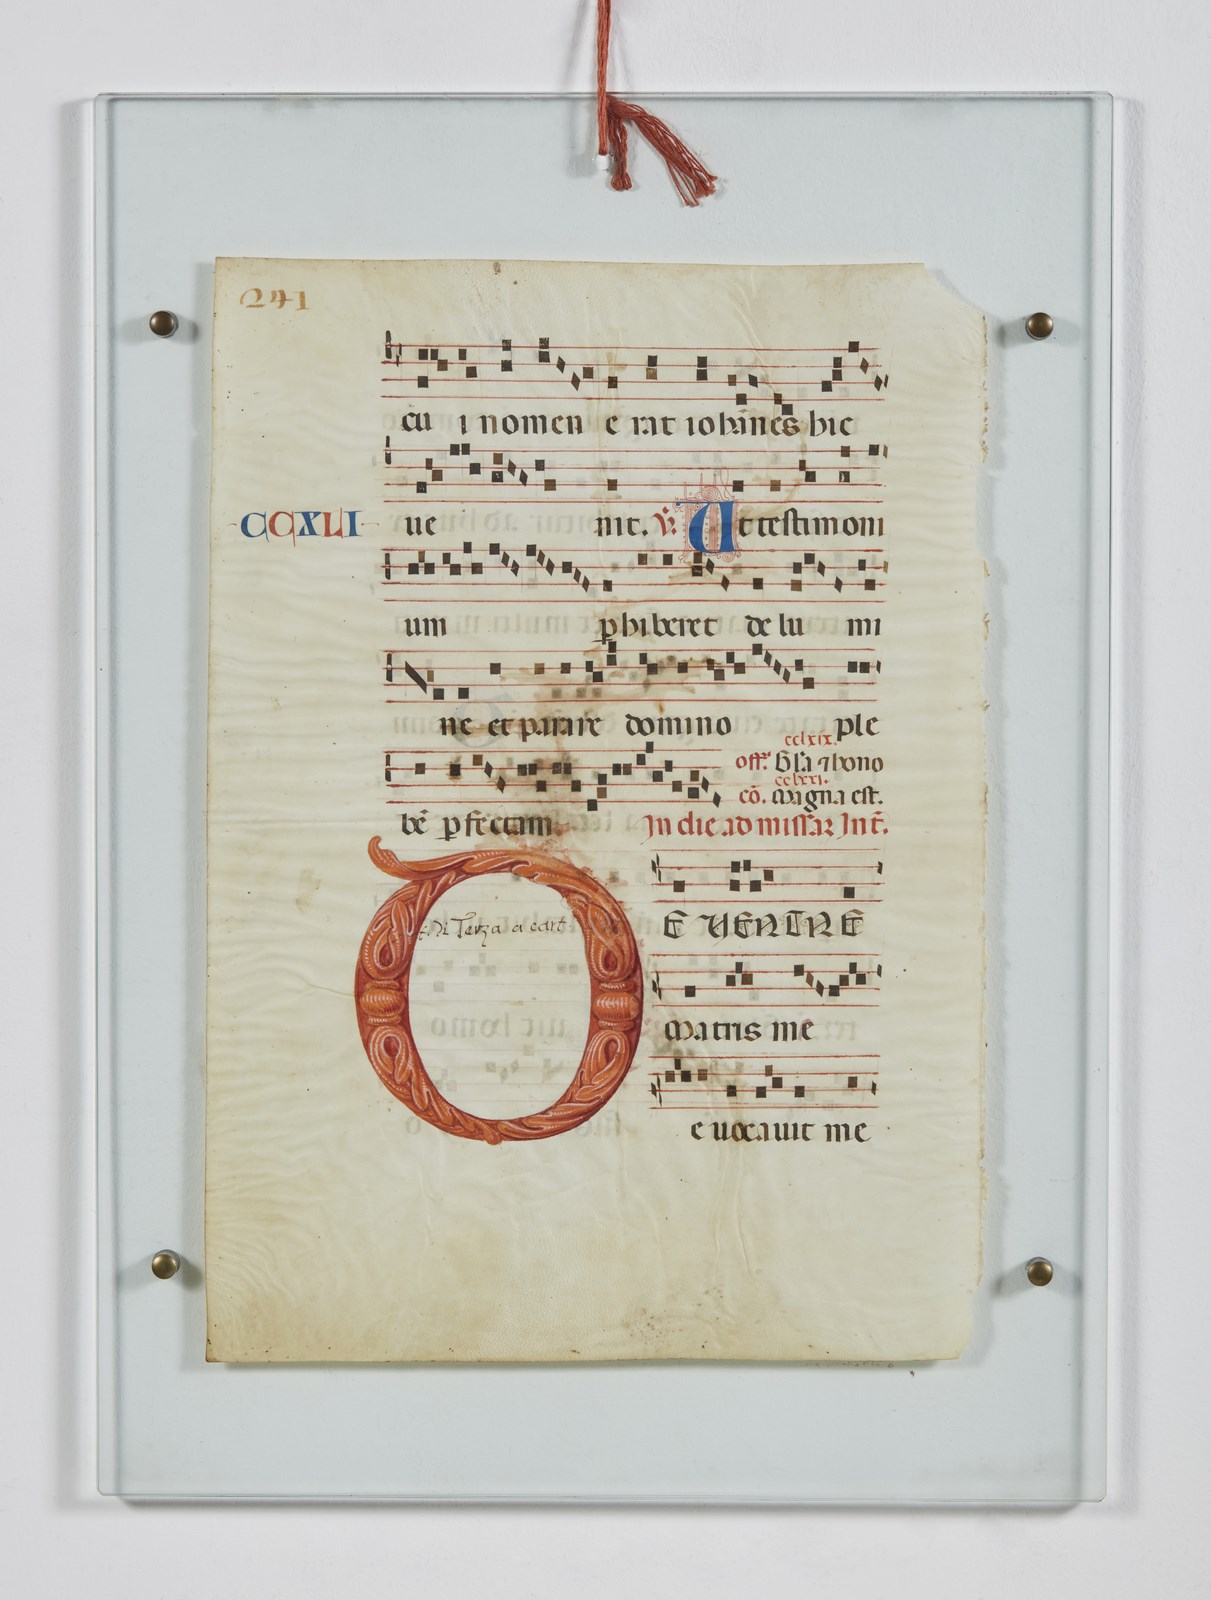 241
cu i nomen e rat iohānes hic
CCXLI
ue nit. ℣. Ut testimoni
um ꝑhiberet de lu mi
ne et parare domino ple
cclxix.
off. Gl̄a ⁊ hono
cclxxi.
cō. Magna est.
bē ꝑfectam. In die ad missaʒ Int̄.
DE VENTRE
Di Terza a cart
Matris me
e uocauit me